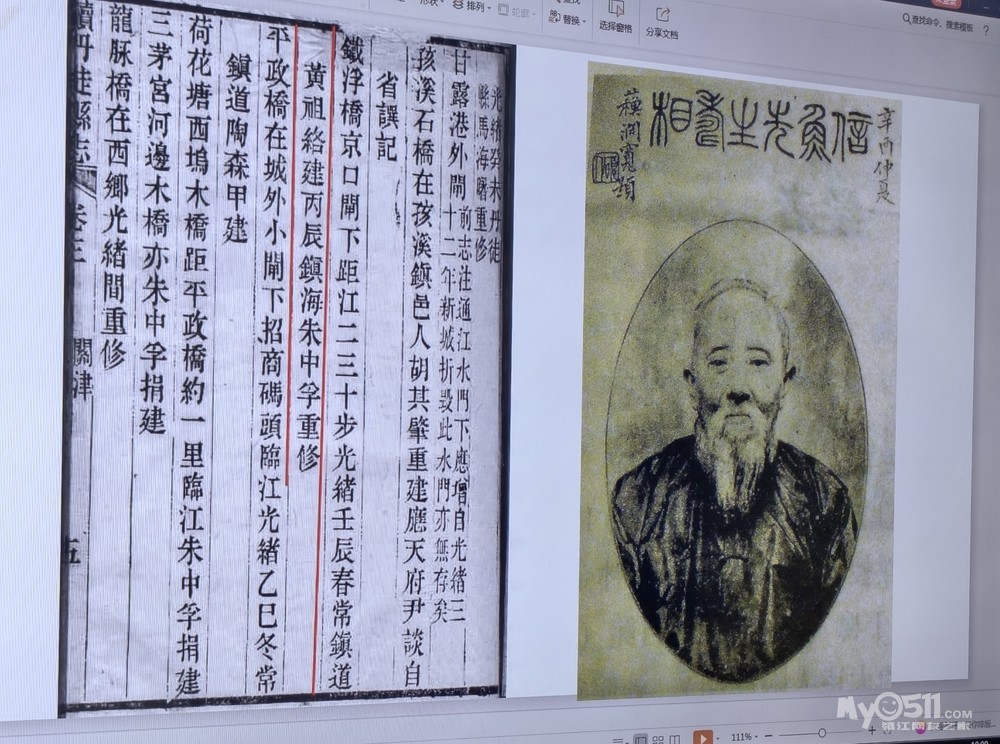 排列
轮廓
替换
选择窗格
分享文档
查找命令、搜索模板
光緒癸未丹徒
縣馬海曙重修
甘露港外閘
前志注通江水門下應增自光緒三
十二年新城折毀此水門亦無存矣
孩溪石橋在孩溪鎮邑人胡其肇重建應天府尹談自
省譔記
鐵浮橋京口閘下距江二三十步光緒壬辰春常鎮道
黃祖絡建丙辰鎮海朱中孚重修
平政橋在城外小閘下招商碼頭臨江光緒乙巳冬常
鎮道陶森甲建
荷花塘西塢木橋距平政橋約一里臨江朱中孚捐建
三茅宮河邊木橋亦朱中孚捐建
龍脉橋在西鄉光緒間重修
續丹徒縣志 卷三 關津 五
辛酉仲夏
信魚先生壽相
111%
My0511.COM
镇江网友之家